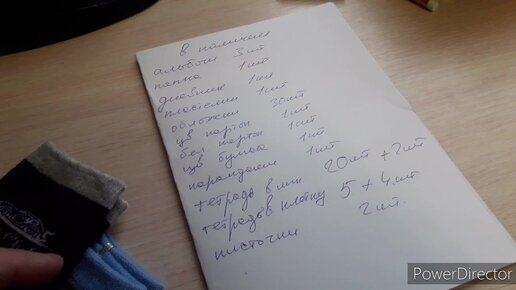 в наличии
альбом 3 шт
папка 1 шт
дневник 1 шт
пластелин 1 шт
обложки 30 шт
цв картон 1 шт
бел картон 1 шт
цв бумага 1 шт
карандаши 1 шт
тетрадь в лин 20 шт + 2 шт
тетрадь в клетку 5 + 4 шт
кисточки 2 шт.
PowerDirector